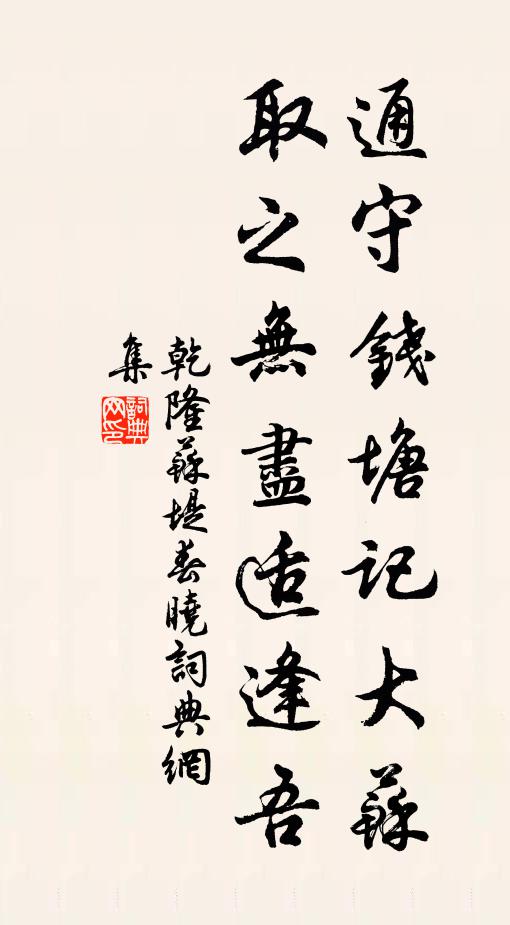 通守錢塘記大蘇
取之無盡适逢吾
乾隆蘇堤春曉詞典網
集
詞典网印